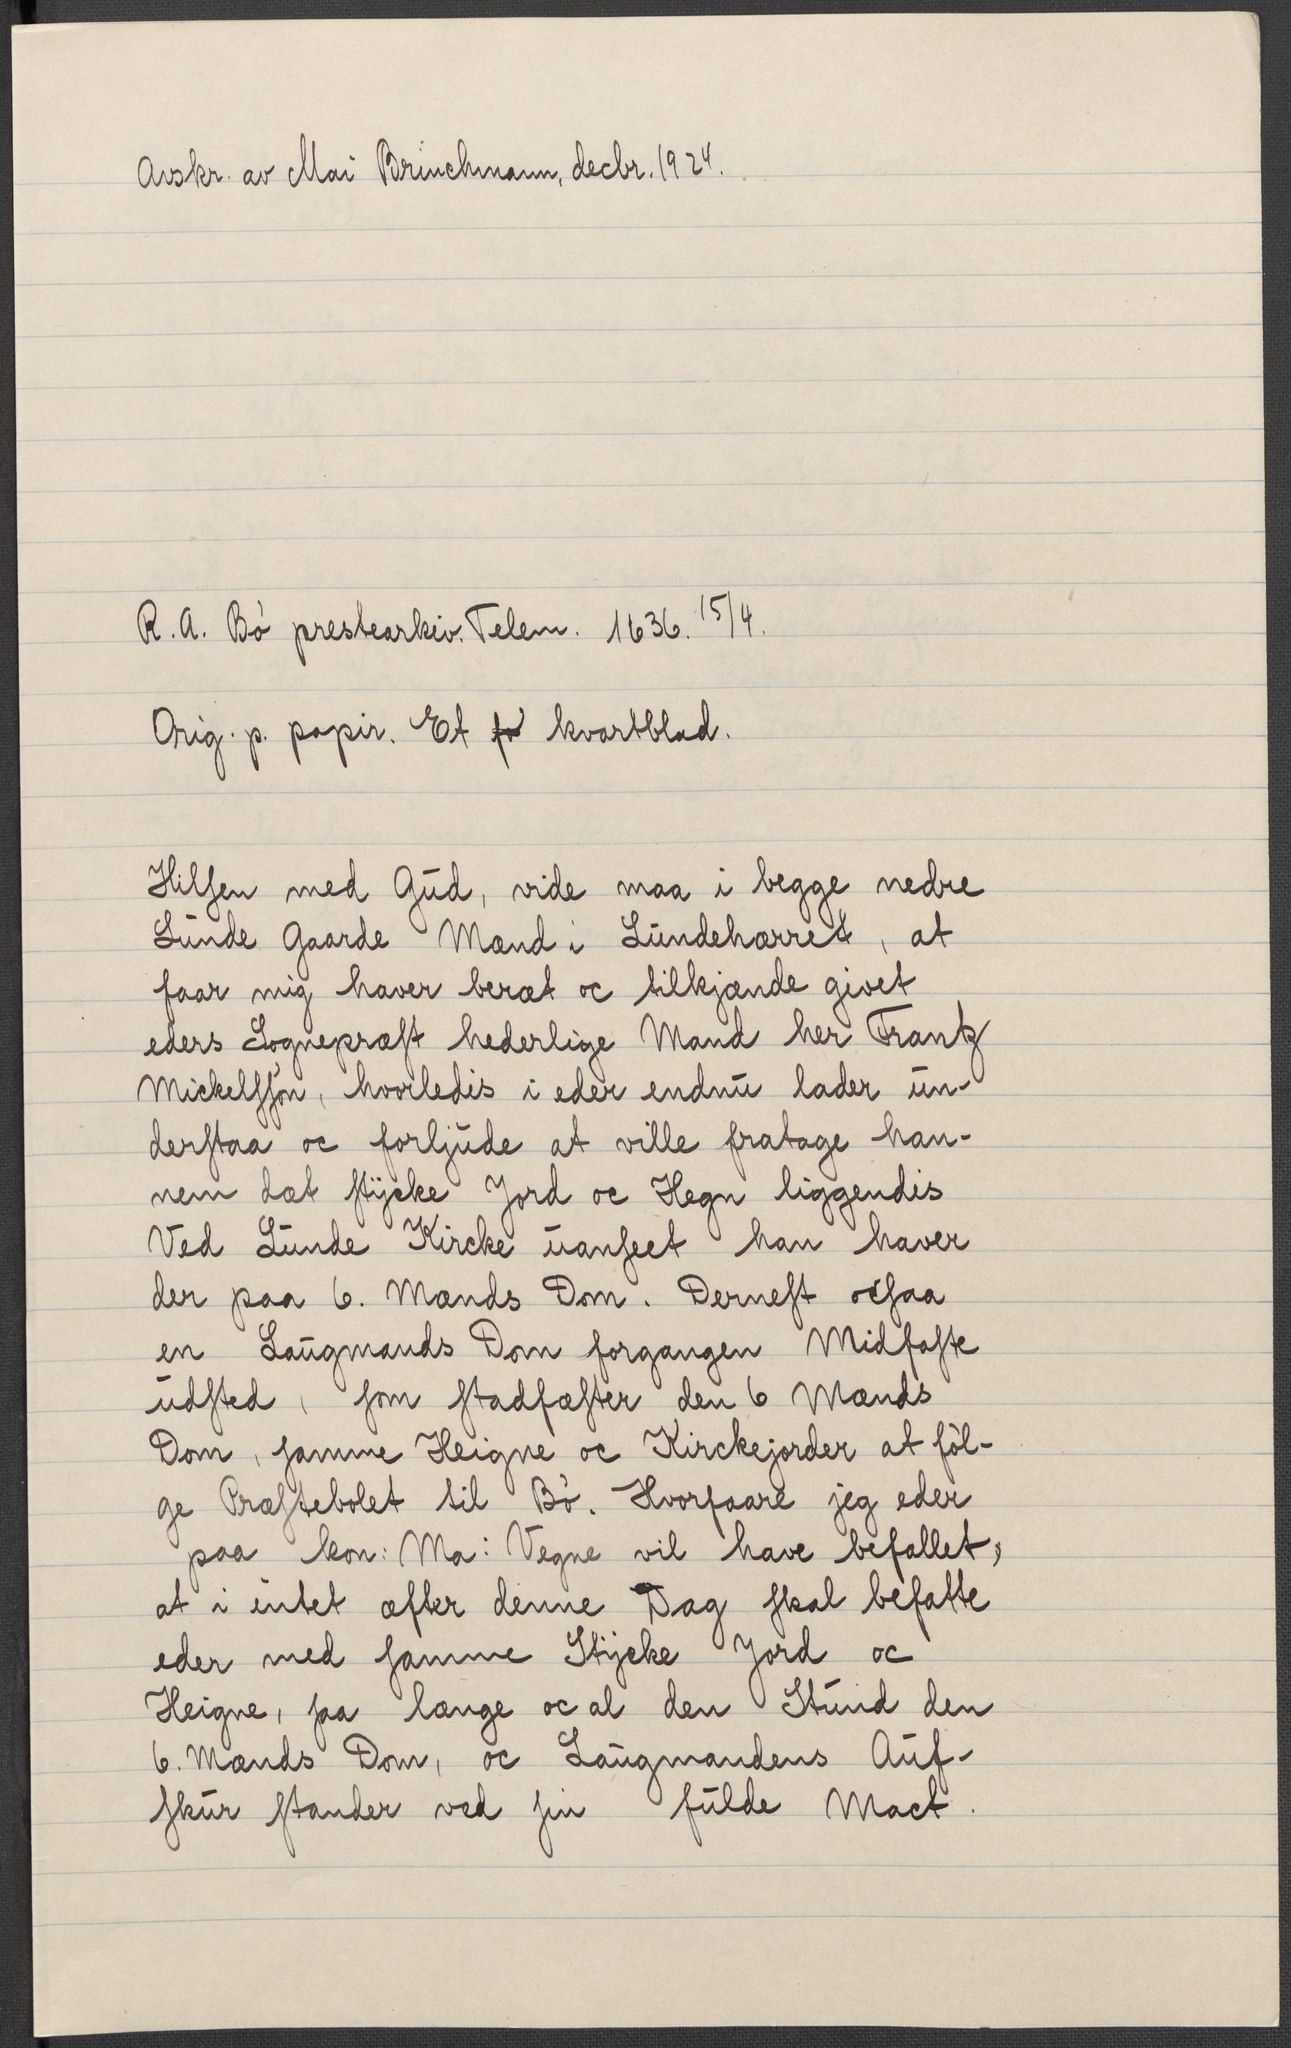 Avskr. av Mai Brinchmann, decbr. 1924.
R. A. Bø prestearkiv. Telem. 1636. 15/4.
Orig. p. papir. Et fo kvartblad.
Hilsen med Gud, vide maa i begge nedre
Lunde Gaarde Mænd i Lundehærret, at
faar mig haver beræt oc tilkjænde givet
eders Sognepræst hederlige Mand her Frantz
Mickelssøn, hvorledis i eder endnu lader un-
derstaa oc forljude at ville fratage han-
nem dæt stÿcke Jord oc Hegn liggendis
Ved Lunde Kircke uanseet han haver
der paa 6. Mænds Dom. Dernest ocsaa
en Laugmands Dom forgangen Midfaste
udsted, som stadfæster den 6 Mænds
Dom, samme Heigne oc Kirckejorder at føl-
ge Præstebolet til Bø. Hvorfaare jeg eder
paa kon: Ma: Vegne vil have befallet,
at i intet æfter denne Dag skal befatte
eder med samme Stÿcke Jord oc
Heigne, saa længe oc al den Stund den
6. Mænds Dom, oc Laugmandens Auf-
skur stander ved sin fulde Mact.